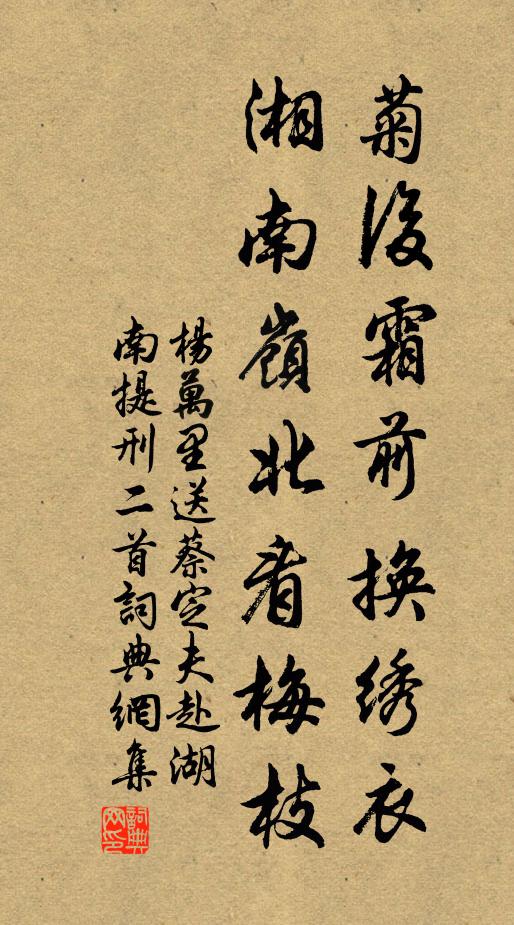 菊後霜前換綉衣
湘南嶺北看梅枝
楊萬里送蔡定夫赴湖
南提刑二首詞典網集
詞典
网印